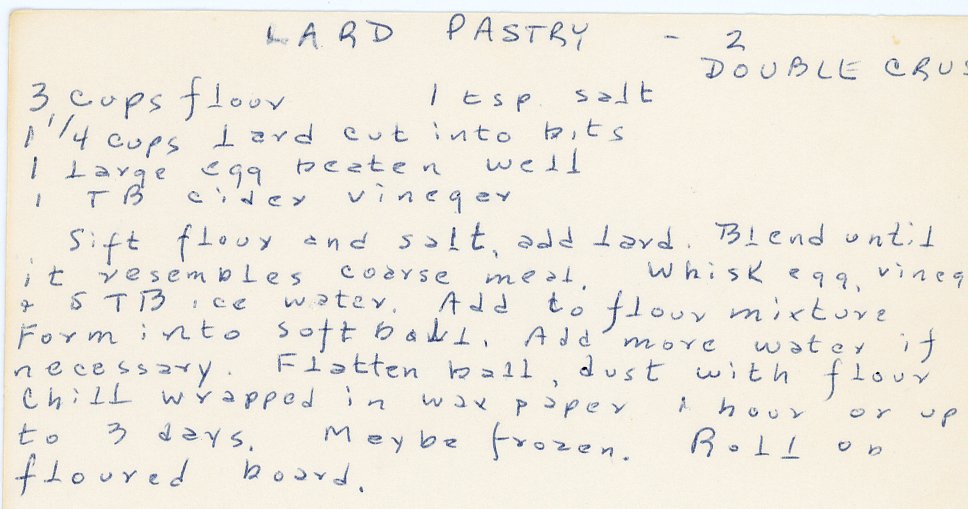 LARD PASTRY - 2
DOUBLE CRUS
3 cups flour 1 tsp salt
1 1/4 cups lard cut into bits
1 large egg beaten well
1 TB cider vinegar
Sift flour and salt, add lard. Blend until
it resembles coarse meal. Whisk egg, vineg
+ 5 TB ice water. Add to flour mixture
Form into soft ball. Add more water if
necessary. Flatten ball, dust with flour
Chill wrapped in wax paper 1 hour or up
to 3 days. Maybe frozen. Roll on
floured board.